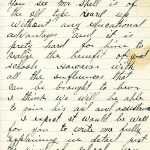 You see Mr Shell is of
the old type reard up
without any educational
advantages and it is
pretty hard for him to
realize the benefit of good
schools, however with
all the influences that
can be brought to bear
I think we will be able
to gain his aid and
I expect it would be well
for you to write me fully
explaining in detail just